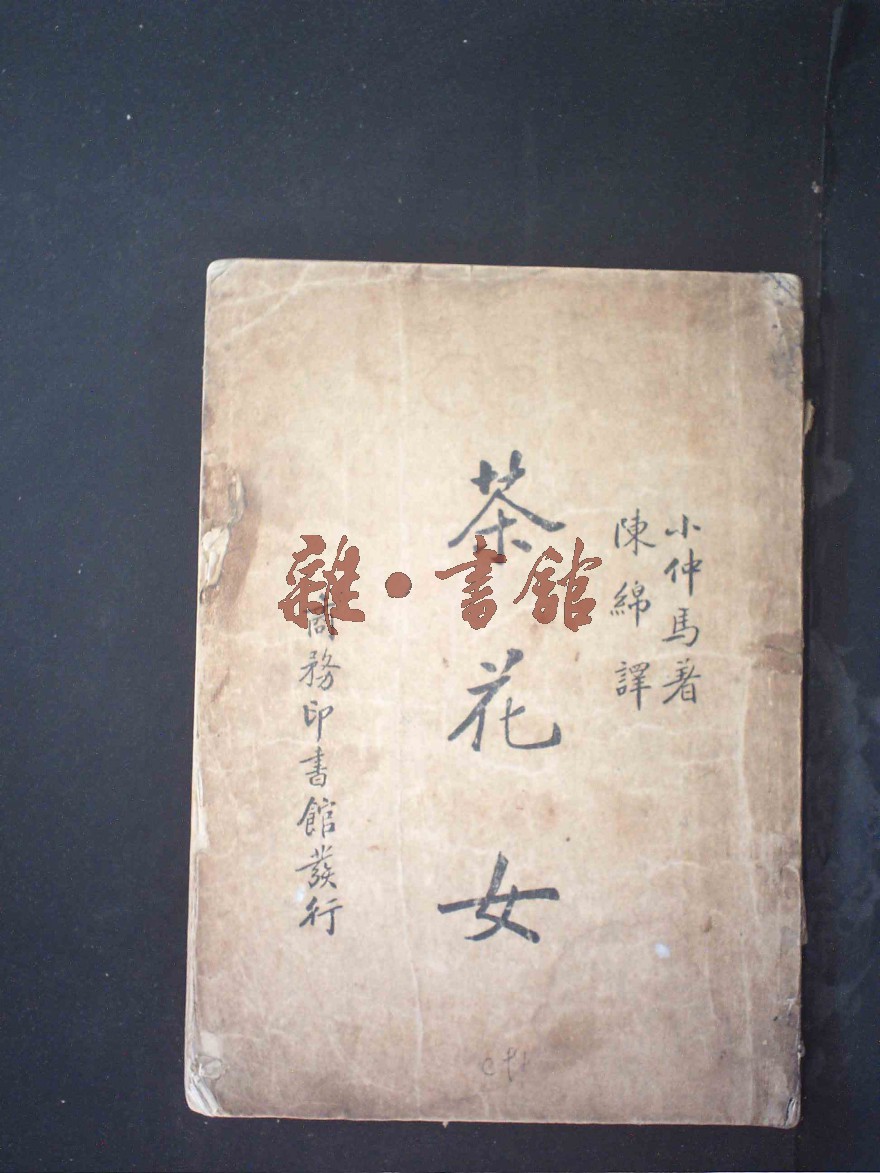 小仲馬著
陳綿譯
茶花女
商務印書館發行
雜·書館